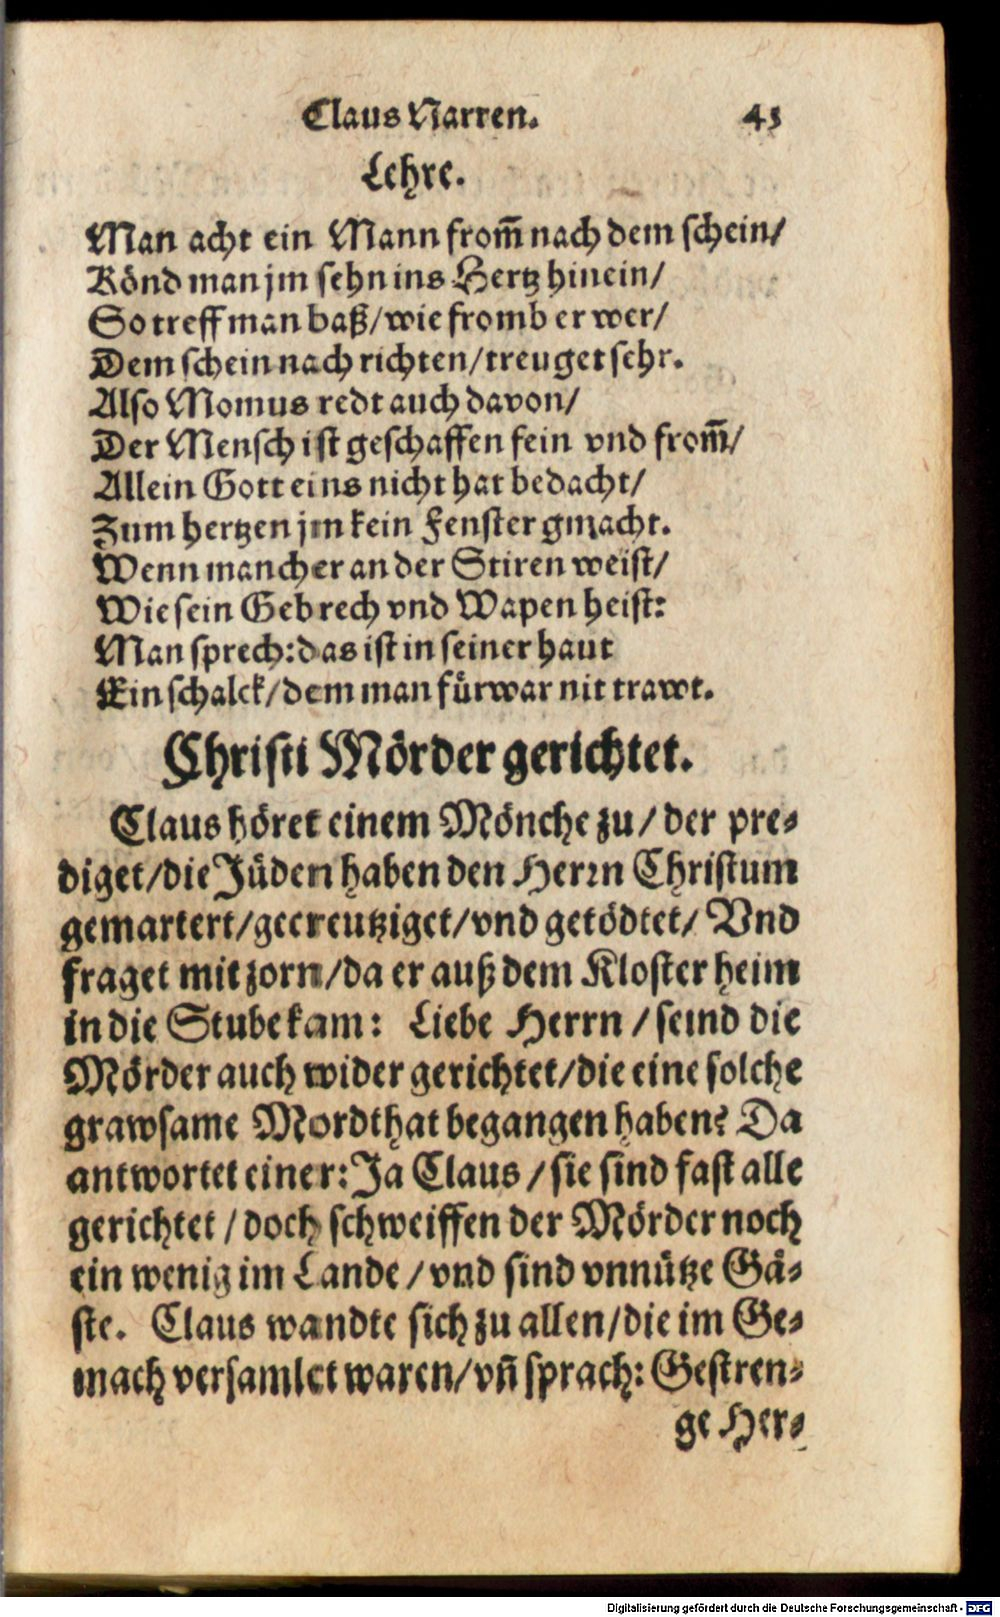 Claus Narren. 43
Lehre.
Man acht ein Mann from̃ nach dem schein/
Könd man jm sehn ins Hertz hinein/
So treff man baß/wie fromb er wer/
Dem schein nach richten/treuget sehr.
Also Momus redt auch davon/
Der Mensch ist geschaffen fein vnd from̃/
Allein Gott eins nicht hat bedacht/
Zum hertzen jm kein Fenster gmacht.
Wenn mancher an der Stiren weist/
Wie sein Gebrech vnd Wapen heist:
Man sprech: das ist in seiner haut
Ein schalck/dem man fürwar nit trawt.
Christi Mörder gerichtet.
Claus höret einem Mönche zu/der pre-
diget/die Jüden haben den Herrn Christum
gemartert/gecreutziget/vnd getödtet/Vnd
fraget mit zorn/da er auß dem Kloster heim
in die Stube kam: Liebe Herrn/seind die
Mörder auch wider gerichtet/die eine solche
grawsame Mordthat begangen haben? Da
antwortet einer: Ja Claus/sie sind fast alle
gerichtet/doch schweiffen der Mörder noch
ein wenig im Lande/vnd sind vnnütze Gä-
ste. Claus wandte sich zu allen/die im Ge-
mach versamlet waren/vñ sprach: Gestren-
ge Her-
Digitalisierung gefördert durch die Deutsche Forschungsgemeinschaft - DFG